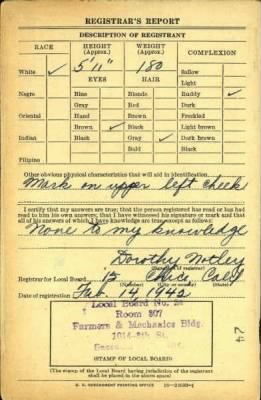 REGISTRAR'S REPORT
DESCRIPTION OF REGISTRANT
RACE HEIGHT (Approx.) WEIGHT (Approx.) COMPLEXION
White ✓ 5' 11" 180 Sallow
EYES HAIR Light
Negro Blue Blonde Ruddy ✓
Gray Red Dark
Oriental Hazel Brown Freckled
Brown ✓ Black Light brown
Indian Black Gray ✓ Dark brown
Filipino Bald Black
Other obvious physical characteristics that will aid in identification
Mark on upper left cheek
I certify that my answers are true; that the person registered has read or has had
read to him his own answers; that I have witnessed his signature or mark and that
all of his answers of which I have knowledge are true, except as follows:
None to my knowledge
Dorothy Motley
Registrar for Local Board 15 Calif
Date of registration Feb. 14 1942
Local Board No.
Room 807
Farmers & Mechanics Bldg.
St.
(STAMP OF LOCAL BOARD)
(The stamp of the Local Board having jurisdiction of the registrant
shall be placed in the above space)
U. S. GOVERNMENT PRINTING OFFICE